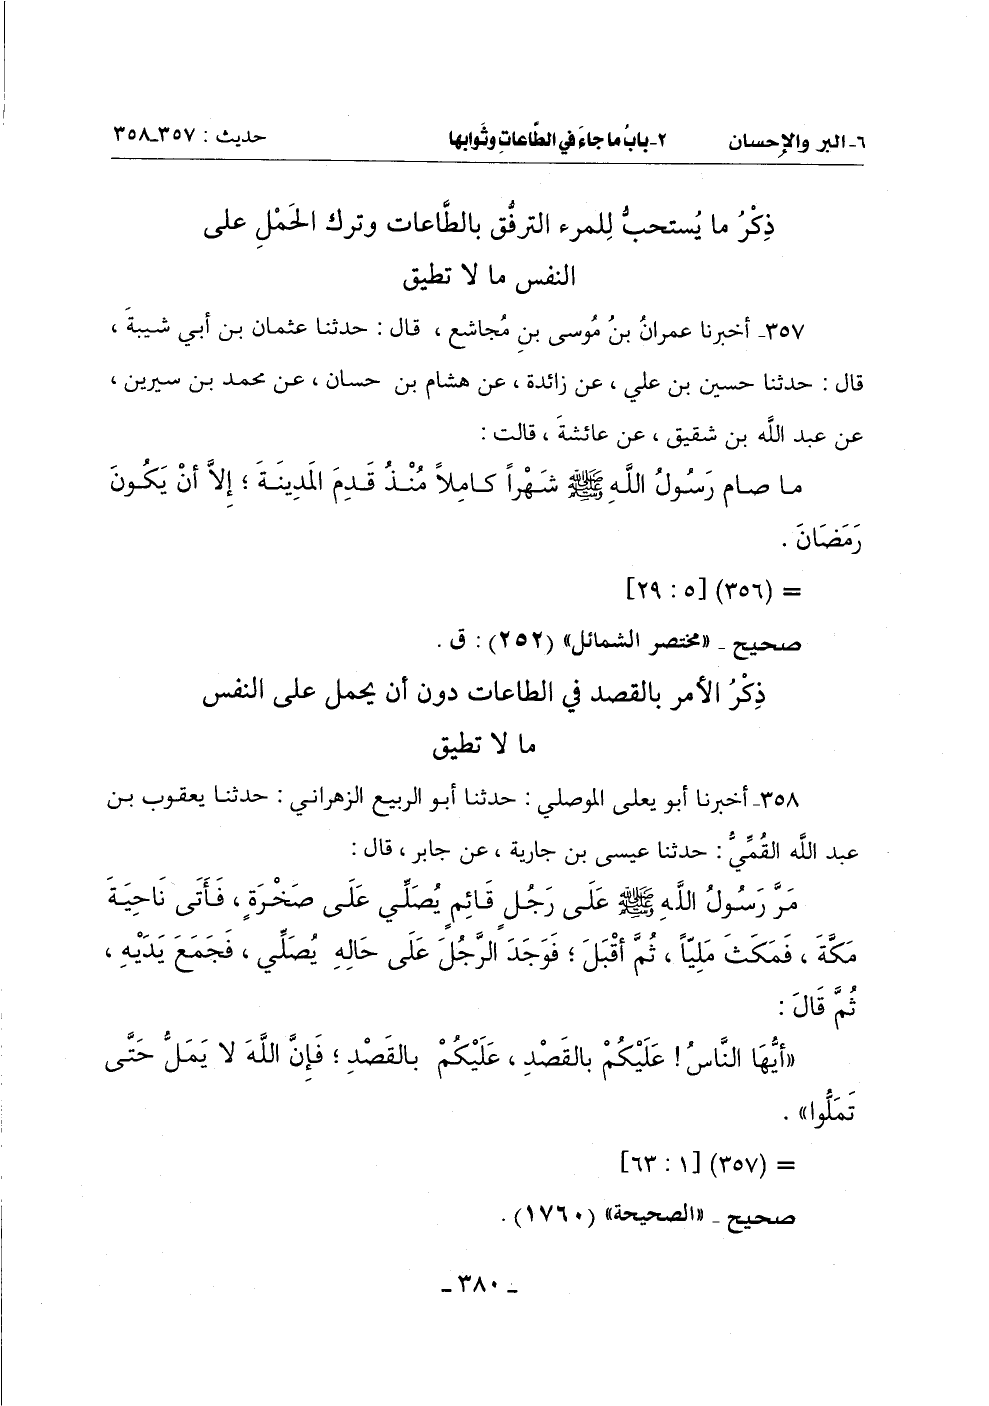 ٦- البر والإحسان ٢- بابُ ما جاءَ في الطَّاعاتِ وثَوابها حديث : ٣٥٧-٣٥٨
ذِكْرُ ما يُستحبُّ لِلمرء الترفُّق بالطَّاعات وترك الحَمْلِ على
النفس ما لا تطيق
٣٥٧- أخبرنا عمرانُ بنُ مُوسى بنِ مُجاشع ، قال : حدثنا عثمان بن أبي شيبةَ ،
قال : حدثنا حسين بن علي ، عن زائدة ، عن هشام بن حسان ، عن محمد بن سيرين ،
عن عبد اللَّه بن شقيق ، عن عائشةَ ، قالت :
ما صام رَسُولُ اللَّهِ ﷺ شَهْراً كاملاً مُنْذُ قَدِمَ المَدِينَةَ ؛ إلاَّ أنْ يَكُونَ
رَمَضَانَ .
= (٣٥٦) [٥ : ٢٩]
صحيح - «مختصر الشمائل» (٢٥٢) : ق .
ذِكْرُ الأمر بالقصد في الطاعات دون أن يحمل على النفس
ما لا تطيق
٣٥٨- أخبرنا أبو يعلى الموصلي : حدثنا أبو الربيع الزهراني : حدثنا يعقوب بن
عبد اللَّه القُمِّيُّ : حدثنا عيسى بن جارية ، عن جابر ، قال :
مَرَّ رَسُولُ اللَّهِ ﷺ عَلَى رَجُلٍ قَائِمٍ يُصَلِّي عَلَى صَخْرَةٍ ، فَأَتَى نَاحِيَةَ
مَكَّةَ ، فَمَكَثَ مَلِيّاً ، ثُمَّ أقْبَلَ ؛ فَوَجَدَ الرَّجُلَ عَلَى حَالِهِ يُصَلِّي ، فَجَمَعَ يَدَيْهِ ،
ثُمَّ قَالَ :
«أيُّهَا النَّاسُ ! عَلَيْكُمْ بالقَصْدِ ، عَلَيْكُمْ بالقَصْدِ ؛ فَإِنَّ اللَّهَ لا يَمَلُّ حَتَّى
تَمَلُّوا» .
= (٣٥٧) [١ : ٦٣]
صحيح - «الصحيحة» (١٧٦٠) .
- ٣٨٠ -